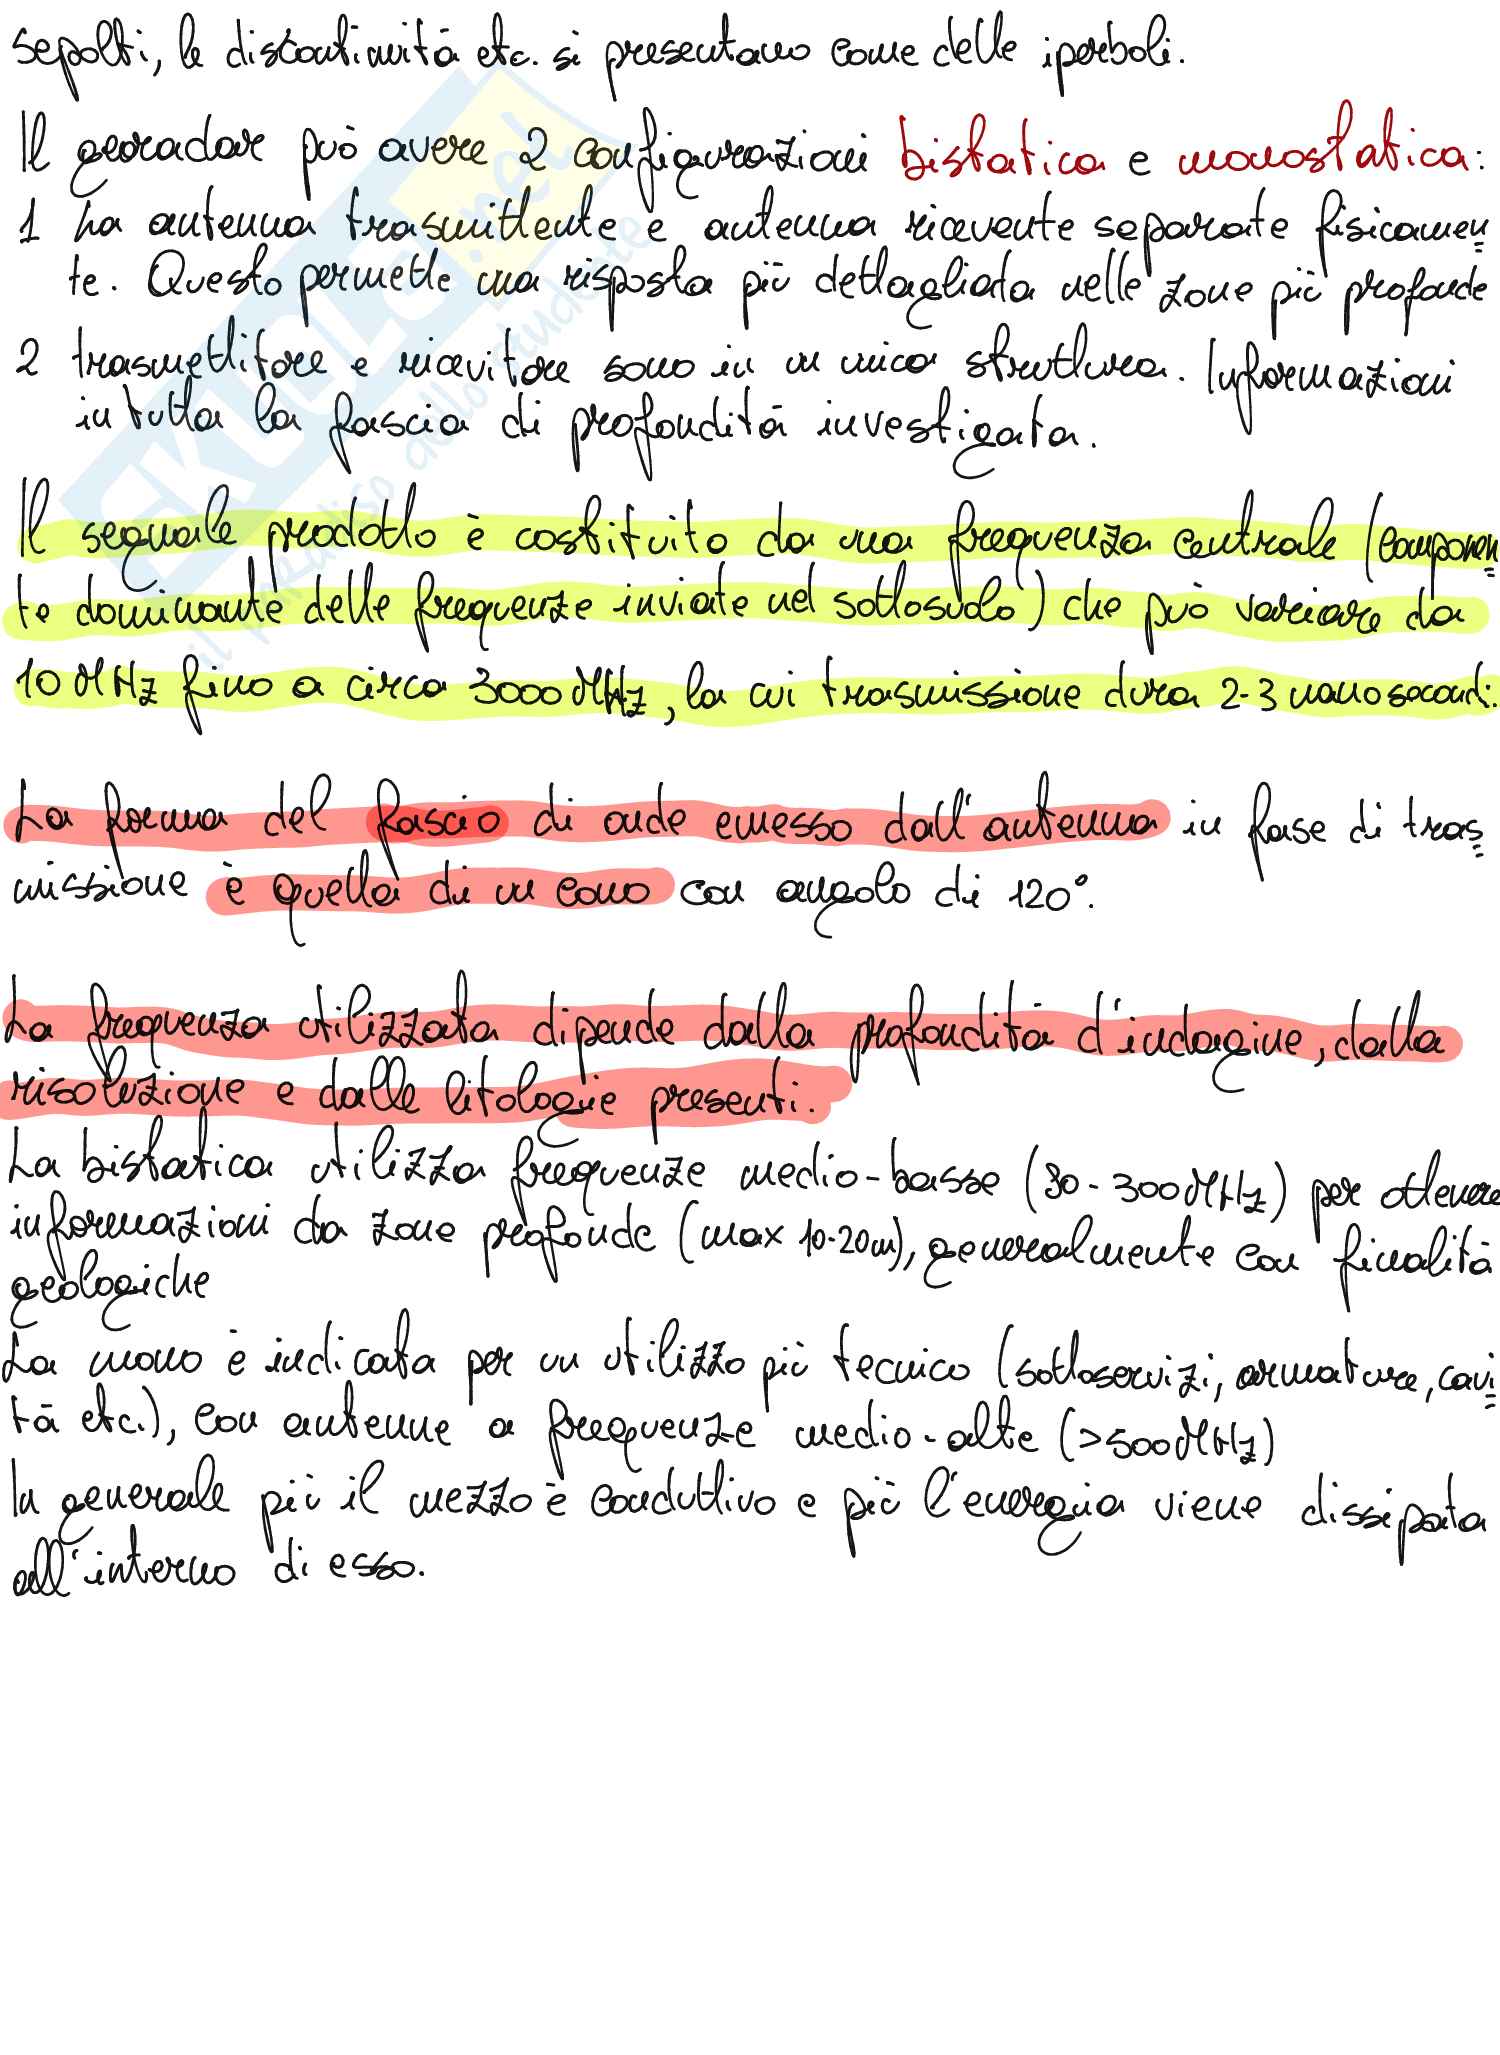 sepolti, le discontinuità etc. si presentano come delle iperboli.
Il georadar può avere 2 configurazioni bistatica e monostatica:
1 ha antenna trasmittente e antenna ricevente separate fisicamen
te. Questo permette una risposta più dettagliata nelle zone più profonde
2 trasmettitore e ricevitore sono in un unica struttura. Informazioni
in tutta la fascia di profondità investigata.
Il segnale prodotto è costituito da una frequenza centrale (componen
te dominante delle frequenze inviate nel sottosuolo) che può variare da
10 MHz fino a circa 3000 MHz, la cui trasmissione dura 2-3 nanosecondi.
La forma del fascio di onde emesso dall'antenna in fase di tras
missione è quella di un cono con angolo di 120°.
La frequenza utilizzata dipende dalla profondità d'indagine, dalla
risoluzione e dalle litologie presenti.
La bistatica utilizza frequenze medio-basse (30-300 MHz) per ottenere
informazioni da zone profonde (max 10-20m), generalmente con finalità
geologiche
La mono è indicata per un utilizzo più tecnico (sottoservizi, armature, cavi
tà etc.), con antenne a frequenze medio-alte (>500 MHz)
In generale più il mezzo è conduttivo e più l'energia viene dissipata
all'interno di esso.
SKUOLA.net
il paradiso dello studente